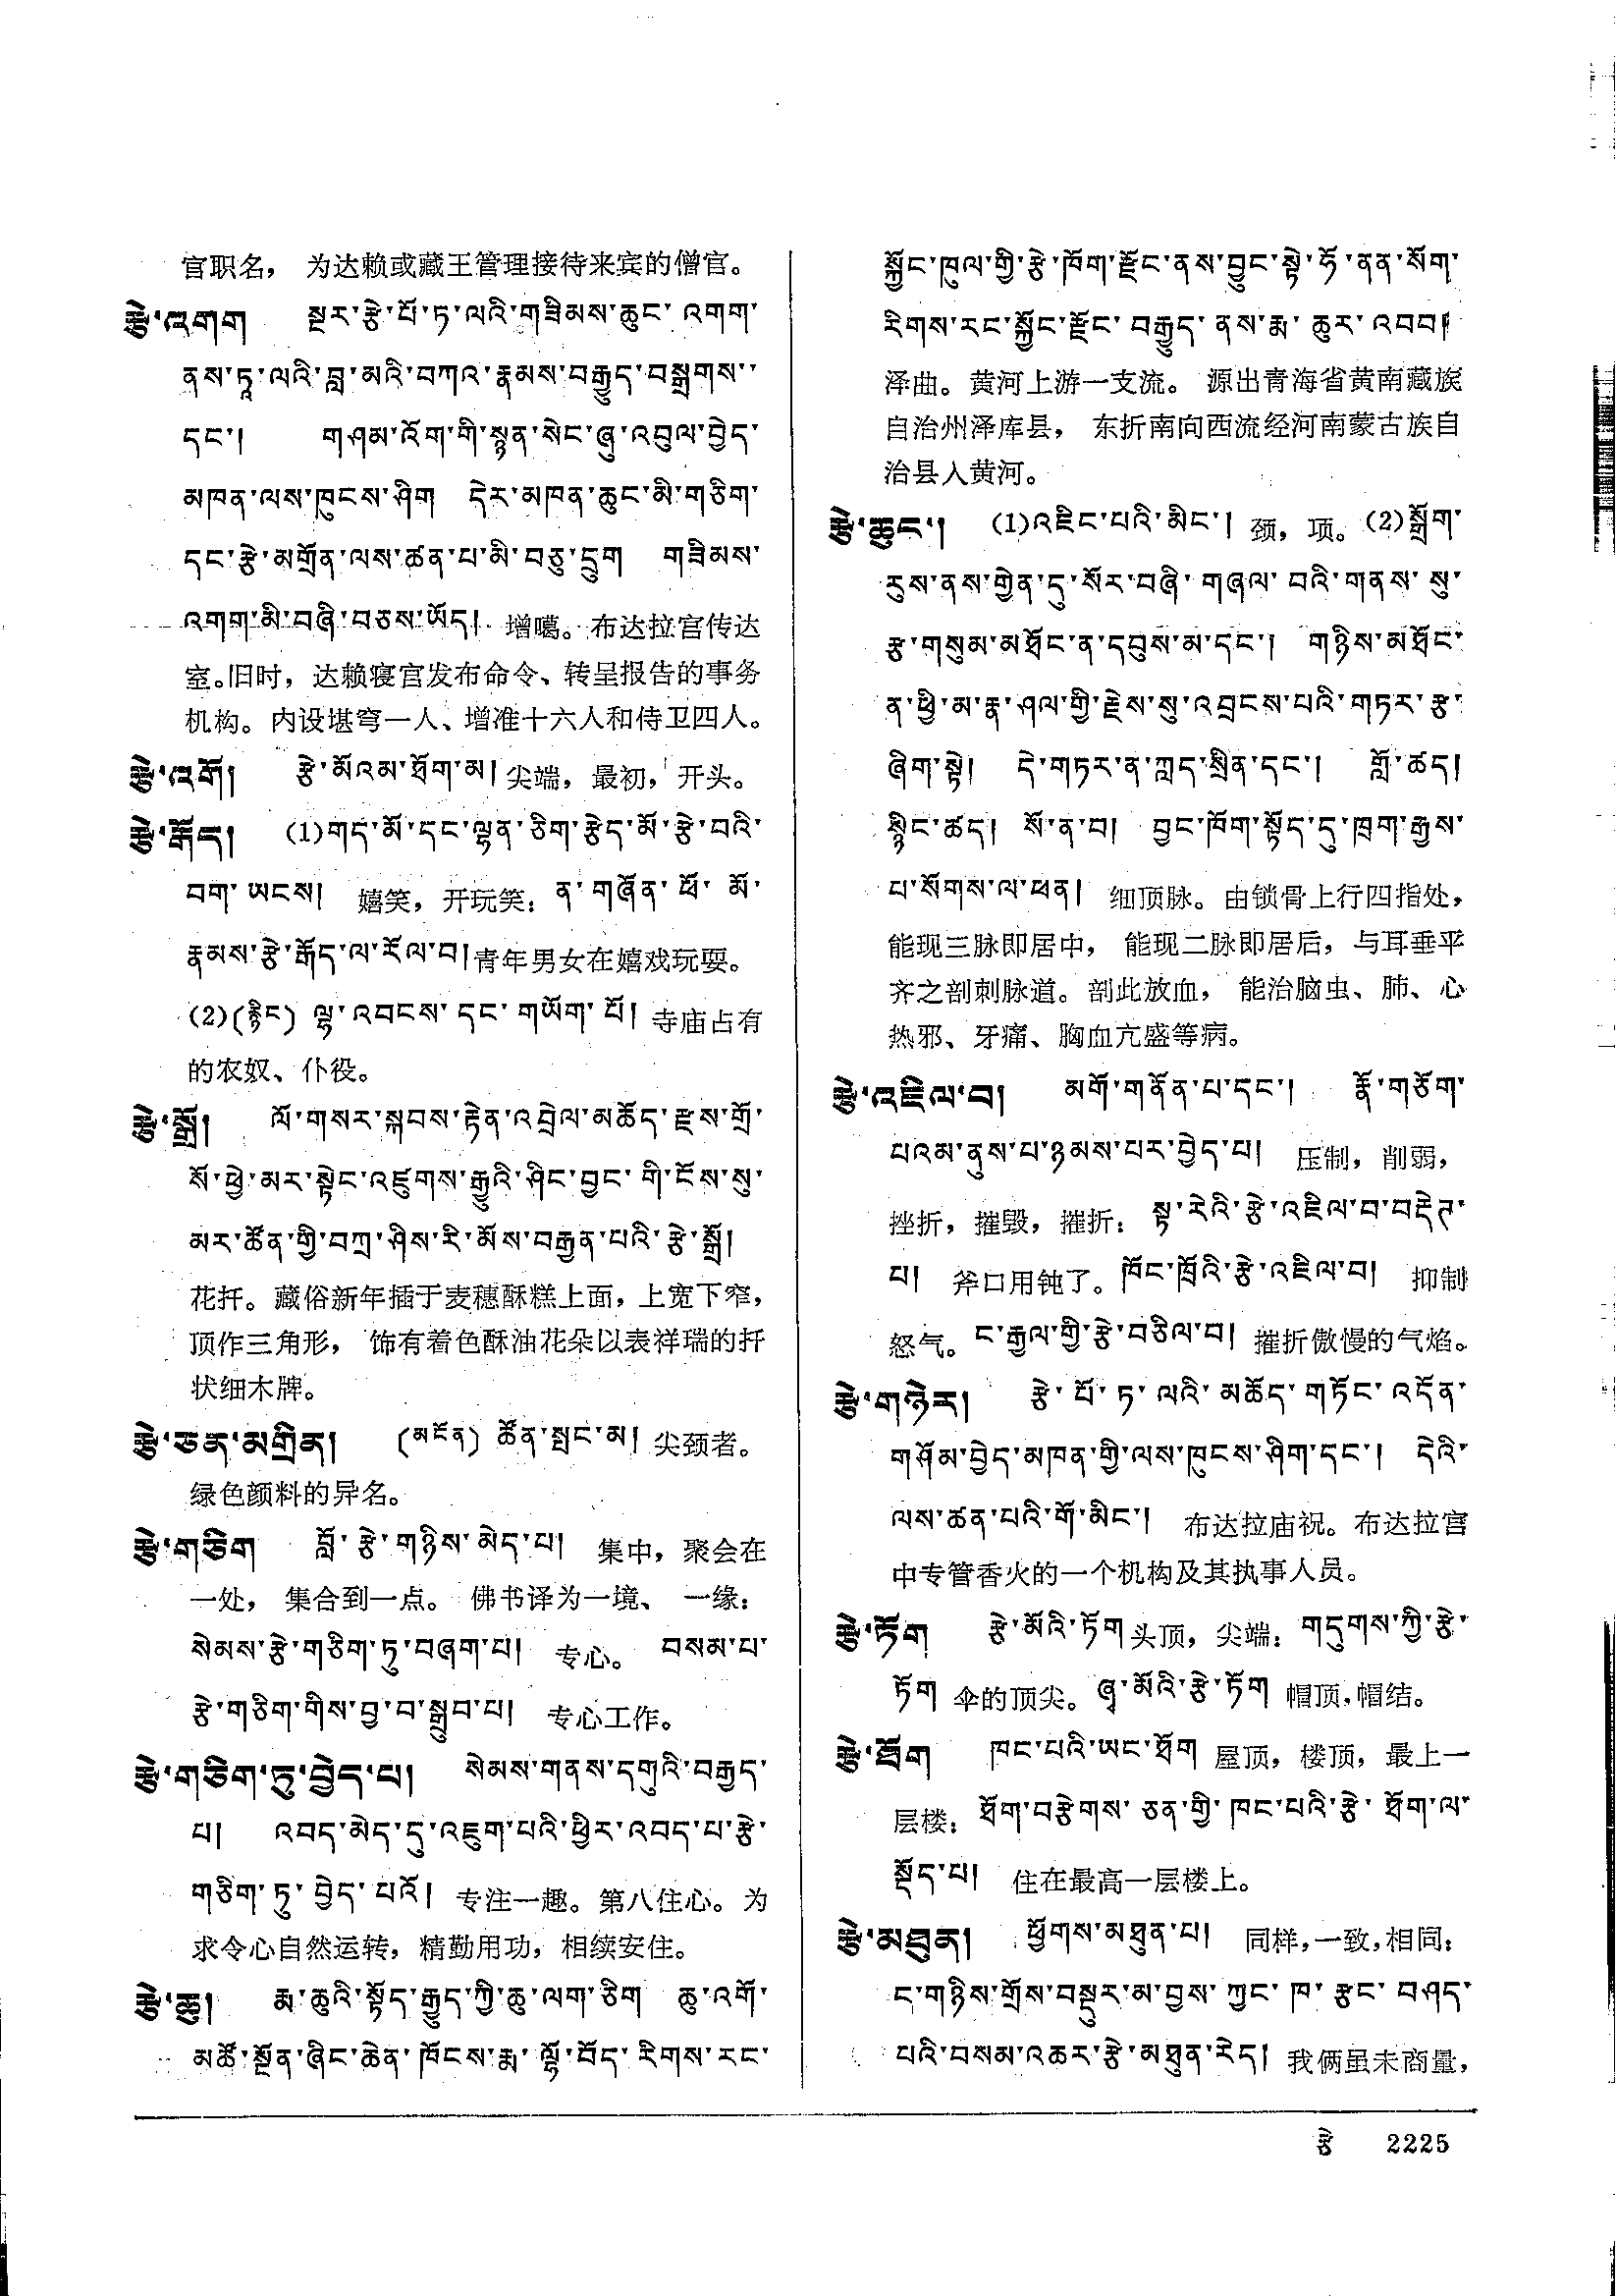 官职名，为达赖或藏王管理接待来宾的僧官。
རྩེ་འགག སྔར་རྩེ་པོ་ཏ་ལའི་གཟིམས་ཆུང་འགག་
ནས་ཏཱ་ལའི་བླ་མའི་བཀའ་རྣམས་བརྒྱུད་བསྒྲགས་
དང་། གཤམ་འོག་གི་སྙན་སེང་ཞུ་འབུལ་བྱེད་
མཁན་ལས་ཁུངས་ཤིག དེར་མཁན་ཆུང་མི་གཅིག་
དང་རྩེ་མགྲོན་ལས་ཚན་པ་མི་བཅུ་དྲུག གཟིམས་
འགག་མི་བཞི་བཅས་ཡོད། 增噶。布达拉宫传达
室。旧时，达赖寝宫发布命令、转呈报告的事务
机构。内设堪穹一人、增准十六人和侍卫四人。
རྩེ་འགོ། རྩེ་མོའམ་ཐོག་མ། 尖端，最初，开头。
རྩེ་རྒོད། (1)གད་མོ་དང་ལྷན་ཅིག་རྩེད་མོ་རྩེ་བའི་
བག་ཡངས། 嬉笑，开玩笑：ན་གཞོན་ཕོ་མོ་
རྣམས་རྩེ་རྒོད་ལ་རོལ་བ།青年男女在嬉戏玩耍。
(2)(རྙིང) ལྷ་འབངས་དང་གཡོག་པོ། 寺庙占有
的农奴、仆役。
རྩེ་སྒྲོ། ལོ་གསར་སྐབས་རྟེན་འབྲེལ་མཆོད་རྫས་གྲོ་
སོ་ཕྱེ་མར་སྟེང་འཛུགས་རྒྱུའི་ཤིང་བྱང་གི་ངོས་སུ་
མར་ཚོན་གྱི་བཀྲ་ཤིས་རི་མོས་བརྒྱན་པའི་རྩེ་སྒྲོ།
花扦。藏俗新年插于麦穗酥糕上面，上宽下窄，
顶作三角形，饰有着色酥油花朵以表祥瑞的扦
状细木牌。
རྩེ་ཅན་མགྲིན། (མངོན) ཚོན་སྤང་མ། 尖颈者。
绿色颜料的异名。
རྩེ་གཅིག བློ་རྩེ་གཉིས་མེད་པ། 集中，聚会在
一处，集合到一点。佛书译为一境、一缘：
སེམས་རྩེ་གཅིག་ཏུ་བཞག་པ། 专心。 བསམ་པ་
རྩེ་གཅིག་གིས་བྱ་བ་སྒྲུབ་པ། 专心工作。
རྩེ་གཅིག་ཏུ་བྱེད་པ། སེམས་གནས་དགུའི་བརྒྱད་
པ། འབད་མེད་དུ་འཇུག་པའི་ཕྱིར་འབད་པ་རྩེ་
གཅིག་ཏུ་བྱེད་པའོ། 专注一趣。第八住心。为
求令心自然运转，精勤用功，相续安住。
རྩེ་ཆུ། རྨ་ཆུའི་སྟོད་རྒྱུད་ཀྱི་ཆུ་ལག་ཅིག ཆུ་འགོ་
མཚོ་སྔོན་ཞིང་ཆེན་ཁོངས་རྨ་ལྷོ་བོད་རིགས་རང་
སྐྱོང་ཁུལ་གྱི་རྩེ་ཁོག་རྫོང་ནས་བྱུང་སྟེ་ཧོ་ནན་སོག་
རིགས་རང་སྐྱོང་རྫོང་བརྒྱུད་ནས་རྨ་ཆུར་འབབ།
泽曲。黄河上游一支流。源出青海省黄南藏族
自治州泽库县，东折南向西流经河南蒙古族自
治县入黄河。
རྩེ་ཆུང་། (1)འཇིང་པའི་མིང་། 颈，项。(2)སྒྲོག་
རུས་ནས་གྱེན་དུ་སོར་བཞི་གཞལ་བའི་གནས་སུ་
རྩ་གསུམ་མཐོང་ན་དབུས་མ་དང་། གཉིས་མཐོང་
ན་ཕྱི་མ་རྣ་ཤལ་གྱི་རྗེས་སུ་འབྲངས་པའི་གཏར་རྩ་
ཞིག་སྟེ། དེ་གཏར་ན་ཀླད་སྲིན་དང་། གློ་ཚད།
སྙིང་ཚད། སོ་ན་བ། བྱང་ཁོག་སྟོད་དུ་ཁྲག་རྒྱས་
པ་སོགས་ལ་ཕན། 细顶脉。由锁骨上行四指处，
能现三脉即居中，能现二脉即居后，与耳垂平
齐之剖刺脉道。剖此放血，能治脑虫、肺、心
热邪、牙痛、胸血亢盛等病。
རྩེ་འཇིལ་བ། མགོ་གནོན་པ་དང་། རྣོ་གཅོག་
པའམ་ནུས་པ་ཉམས་པར་བྱེད་པ། 压制，削弱，
挫折，摧毁，摧折：སྟ་རེའི་རྩེ་འཇིལ་བ་བརྡེཊ་
པ། 斧口用钝了。ཁོང་ཁྲོའི་རྩེ་འཇིལ་བ། 抑制
怒气。ང་རྒྱལ་གྱི་རྩེ་བཅིལ་བ། 摧折傲慢的气焰。
རྩེ་གཉེར། རྩེ་པོ་ཏ་ལའི་མཆོད་གཏོང་འདོན་
གཤོམ་བྱེད་མཁན་གྱི་ལས་ཁུངས་ཤིག་དང་། དེའི་
ལས་ཚན་པའི་གོ་མིང་། 布达拉庙祝。布达拉宫
中专管香火的一个机构及其执事人员。
རྩེ་ཏོག རྩེ་མོའི་ཏོག 头顶，尖端：གདུགས་ཀྱི་རྩེ་
ཏོག 伞的顶尖。ཞྭ་མོའི་རྩེ་ཏོག 帽顶，帽结。
རྩེ་ཐོག ཁང་པའི་ཡང་ཐོག 屋顶，楼顶，最上一
层楼：ཐོག་བརྩེགས་ཅན་གྱི་ཁང་པའི་རྩེ་ཐོག་ལ་
སྡོད་པ། 住在最高一层楼上。
རྩེ་མཐུན། ཕྱོགས་མཐུན་པ། 同样，一致，相同：
ང་གཉིས་གྲོས་བསྡུར་མ་བྱས་ཀྱང་ཁ་རྩང་བཤད་
པའི་བསམ་འཆར་རྩེ་མཐུན་རེད། 我俩虽未商量，
རྩེ 2225